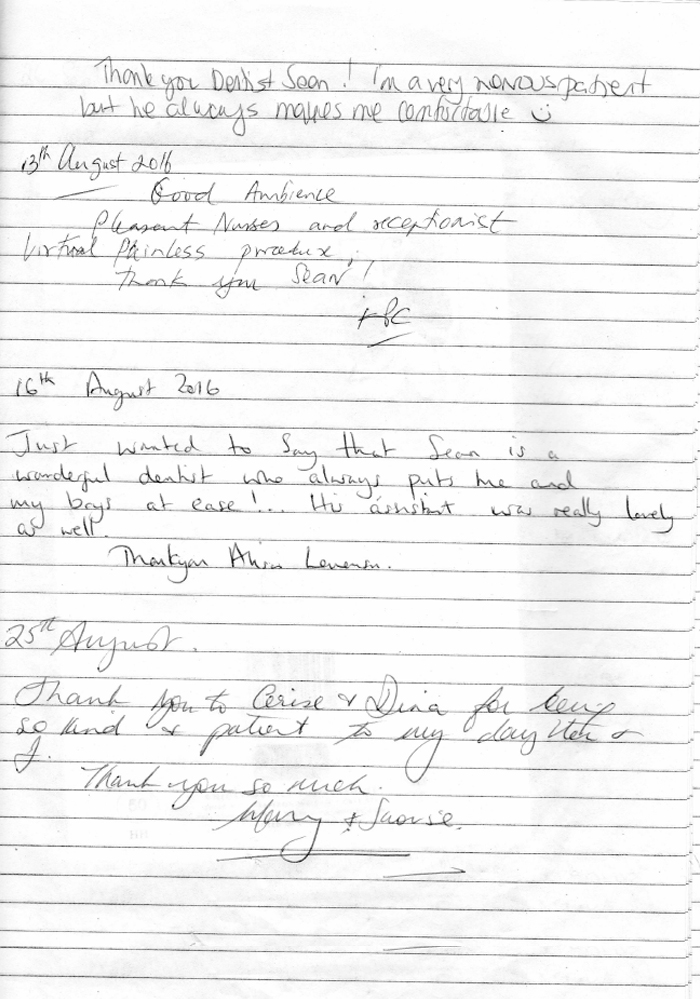 Thank you Dentist Sean! I'm a very nervous patient
but he always makes me comfortable ☺
13th August 2016
Good Ambience
Pleasent Nurses and receptionist
Virtual Painless procedure;
Thank you Sean!
16th August 2016
Just wanted to say that Sean is a
wonderful dentist who always puts me and
my boys at ease!.. His assistant was really lovely
as well.
Thankyou Alison
25th August.
Thank you to Cerise & Dina for being
so kind & patient to my daughter &
I.
Thank you so much.
Mary & Saoirse.